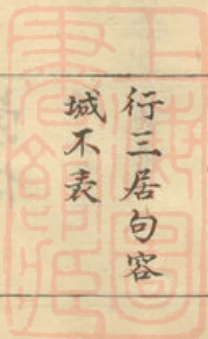 行三居句容
城不表